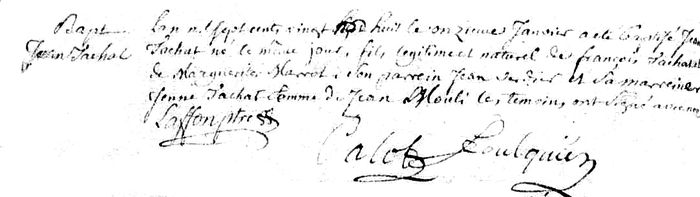 Bapt Lan mil sept cents vingt huit le onzieme Janvier a eté baptisé Jean
Jean Fachat Fachat né le meme jour, fils legitime et naturel de françois Fachat et
de Marguerite Marrot; son parrein Jean Verdier et sa marreine
Jenne Fachat femme de Jean Mouli les temoins ont signé avec nous
Laffon ptre
Calot Foulquier